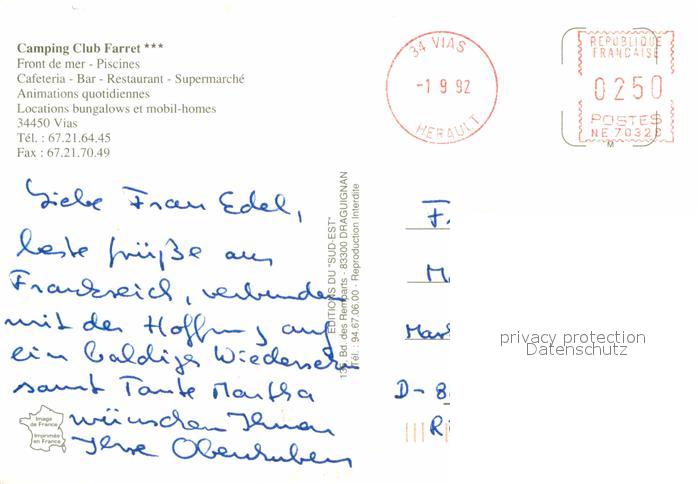 Camping Club Farret ***
Front de mer - Piscines
Cafeteria - Bar - Restaurant - Supermarché
Animations quotidiennes
Locations bungalows et mobil-homes
34450 Vias
Tél. : 67.21.64.45
Fax : 67.21.70.49
34 VIAS
-1 9 92
HERAULT
REPUBLIQUE
FRANCAISE
0250
POSTES
NE 70322
M
Liebe Frau Edel,
beste Grüße aus
Frankreich, verbunden
mit der Hoffnung auf
ein baldiges Wiedersehen
samt Tante Martha
wünschen Ihnen
Ihre
Image
de France
Imprimée
en France
EDITIONS DU "SUD-EST"
Bd. des Remparts - 83300 DRAGUIGNAN
Tél. : 94.67.06.00 - Reproduction Interdite
F.
M
Mar
D- 8
R
privacy protection
Datenschutz